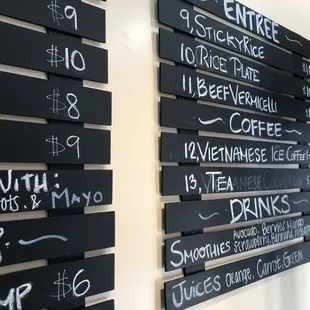 $9
$10
$8
$9
WITH:
& MAYO
$6
ENTREE
9, STICKYRICE
10, RICE PLATE
11, BEEF VERMICELLI
~ COFFEE ~
12, VIETNAMESE ICE COFFEE
13, TEA
~ DRINKS ~
SMOOTHIES AVOCADO,
STRAWBERRY, BANANA
JUICES ORANGE, CARROT, GREEN